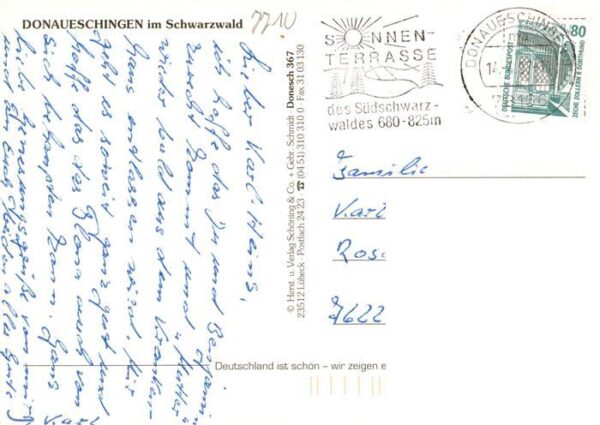 DONAUESCHINGEN im Schwarzwald
7710
SONNEN-
TERRASSE
des Südschwarz-
waldes 680-825m
DONAUESCHINGEN
80
DEUTSCHE BUNDESPOST
ZECHE ZOLLERN II DORTMUND
Lieber Karl-Heinz,
ich hoffe das Du und
zurecht kommt und "Mutter"
wieder bald aus dem Kranken-
haus entlassen wird. Mir
geht es soweit ganz gut und
hoffe das das Klima auch von
sich behaupten kann. Ganz
liebe Genesungsgrüße von mir
und Euch beiden alles Gute
Karl
© Herst. u. Verlag Schöning & Co. + Gebr. Schmidt Donesch 367
23512 Lübeck · Postfach 24 23 · ☎ (04 51) 310 310 0 · Fax 31 03 130
Familie
Karl
Ros
7622
Deutschland ist schön – wir zeigen e